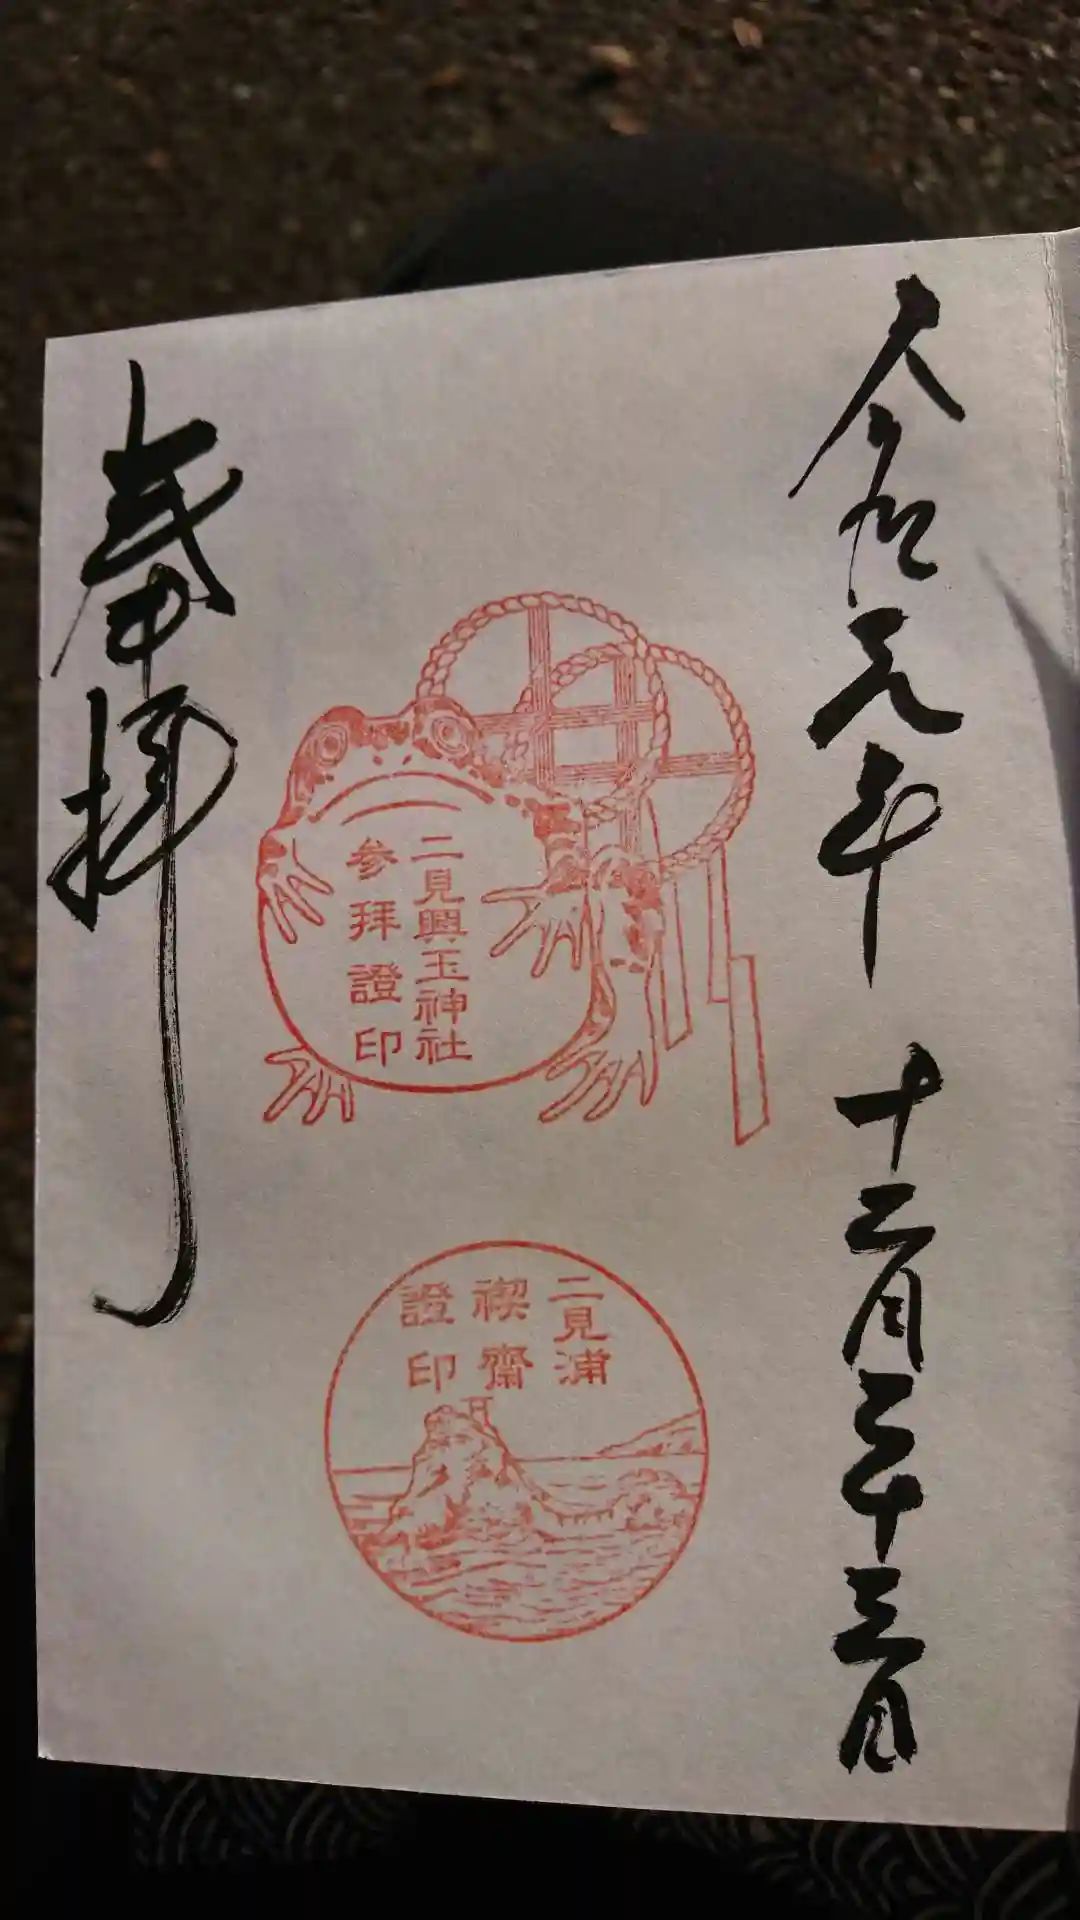 令和元年 十二月二十三日
二見興玉神社
参拝證印
二見浦
禊齋
證印
奉拝